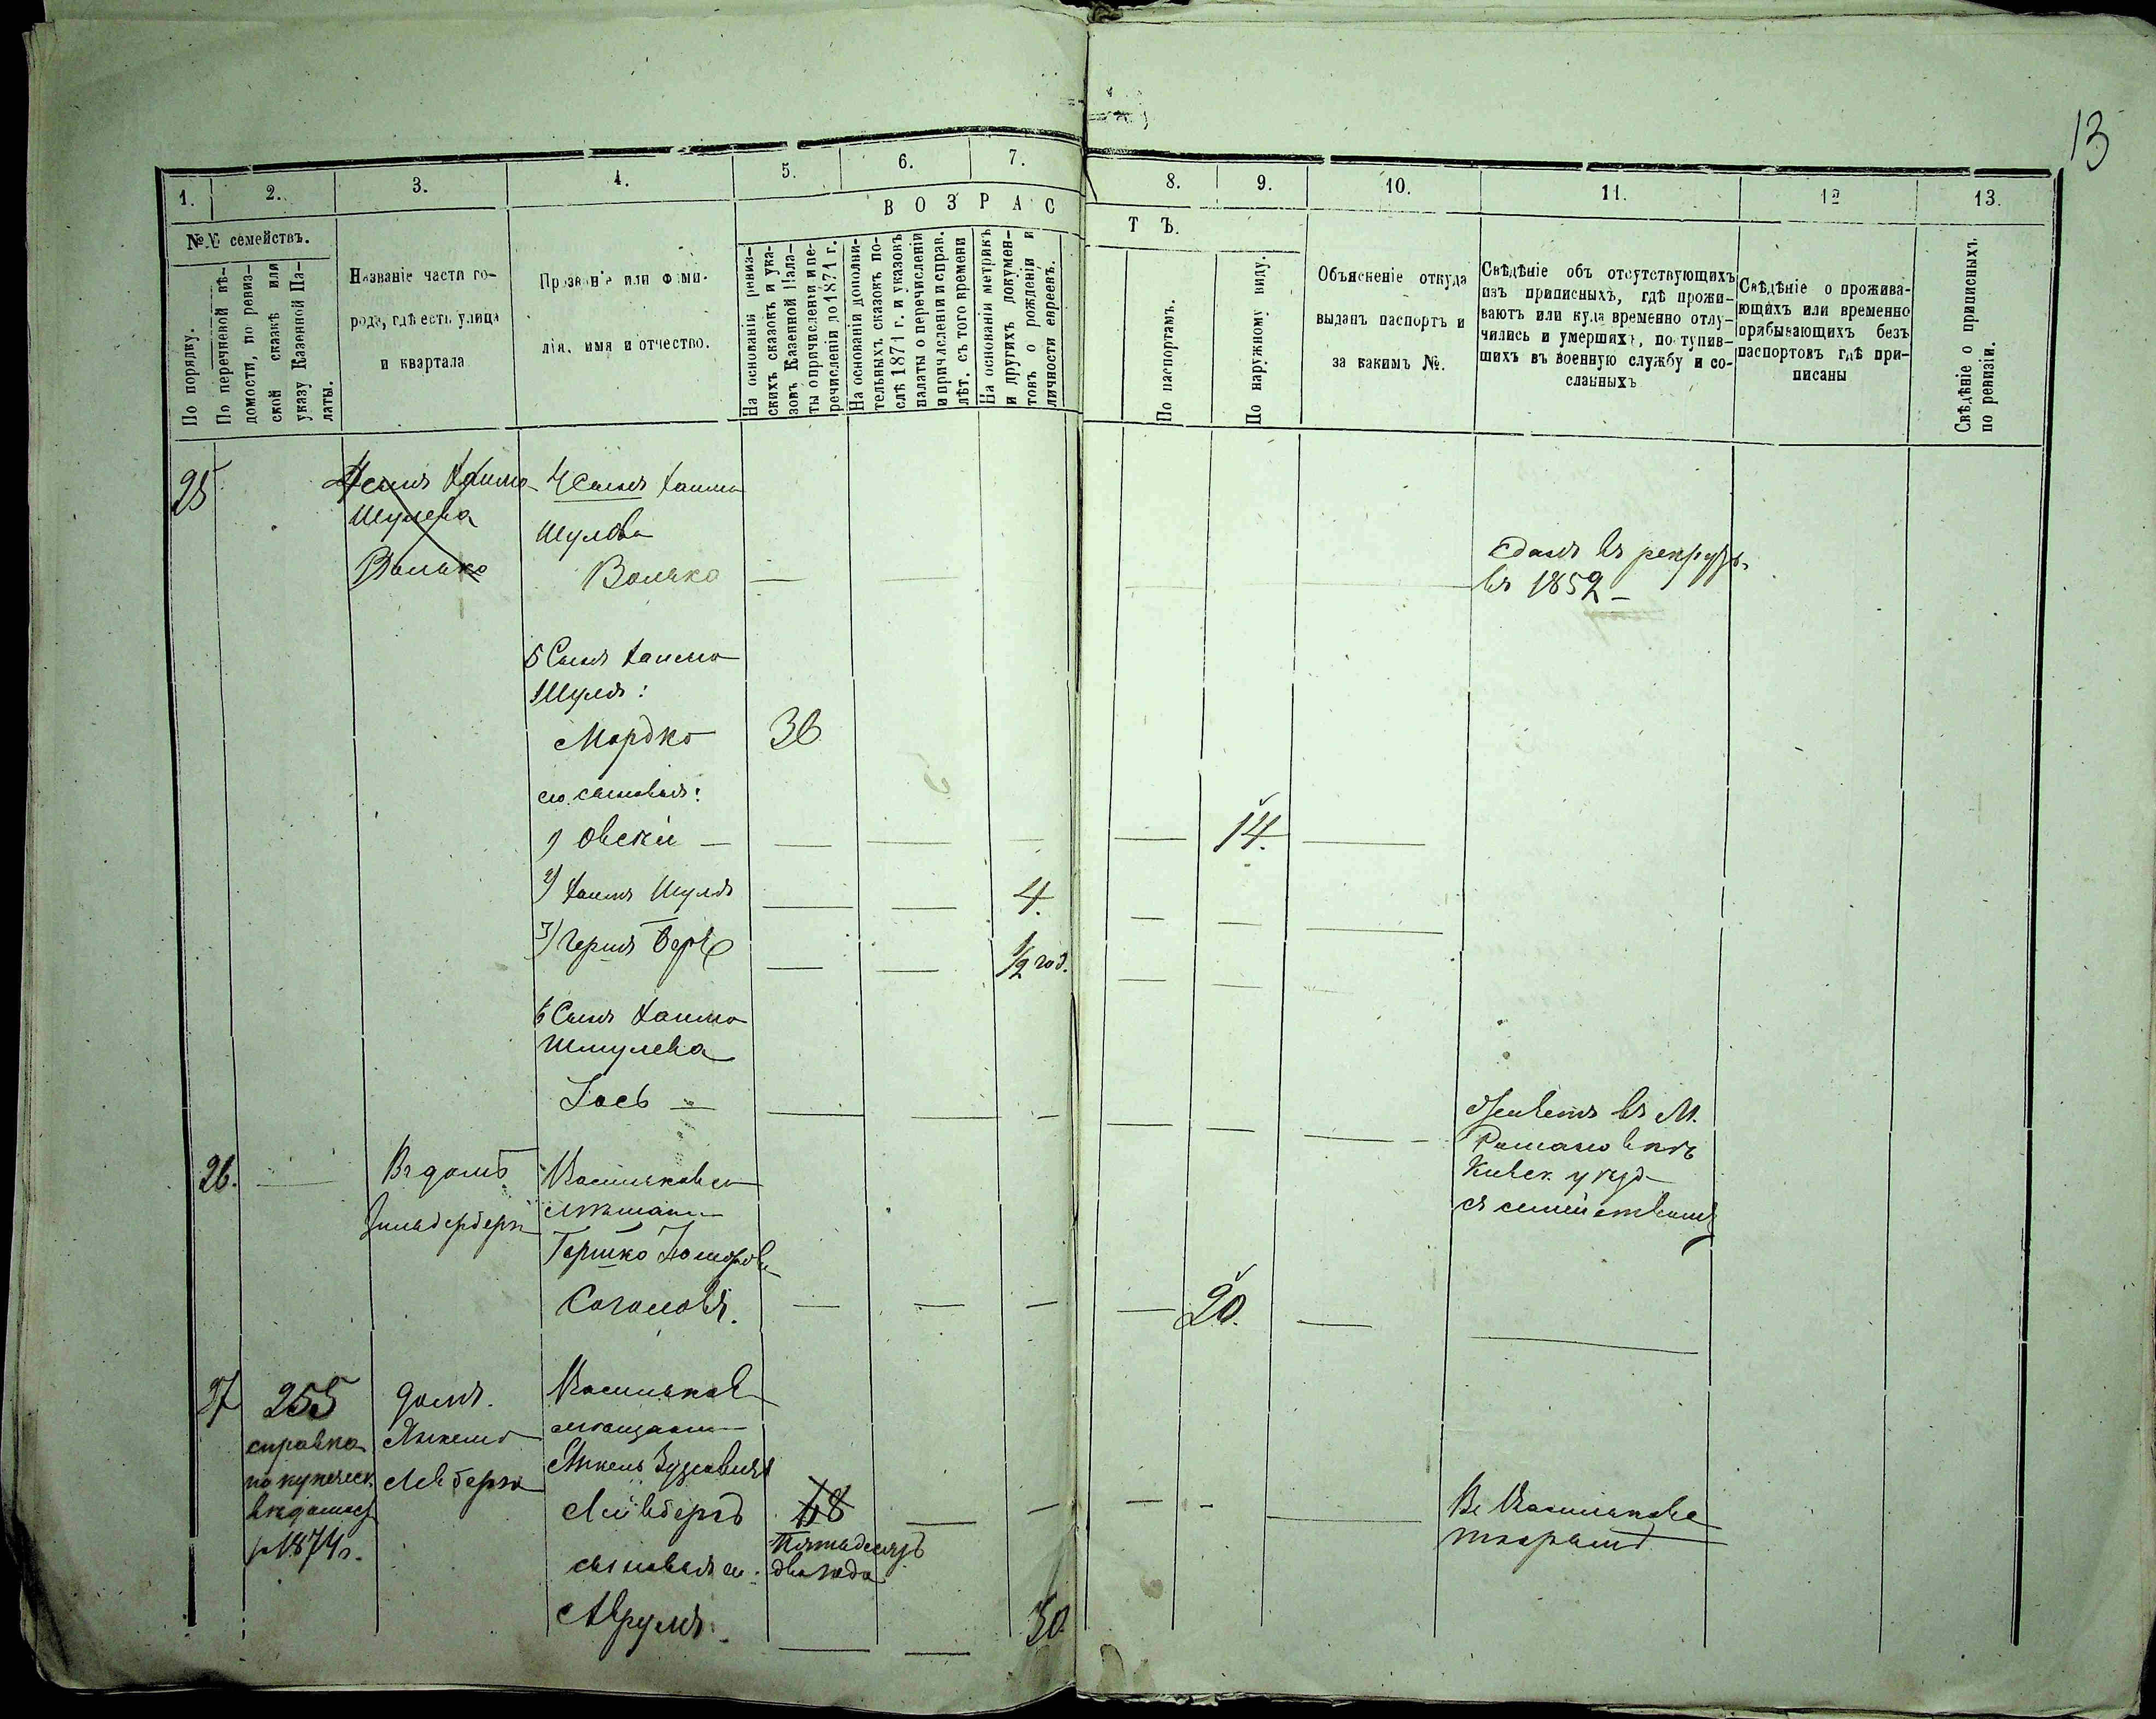 13
1.
2.
3.
4.
5.
6.
7.
8.
9.
10.
11.
12
13.
№№ семействъ.
По порядку.
По перечневой вѣ-
домости, по ревиз-
ской сказкѣ или
указу Казенной Па-
латы.
Названіе части го-
рода, гдѣ есть улица
и квартала
Прозваніе или фами-
лія, имя и отчество.
ВОЗРАС
ТЪ.
На основаніи ревиз-
скихъ сказокъ и ука-
зовъ Казенной Пала-
ты о причисленіи и пе-
речисленіи до 1871 г.
На основаніи дополни-
тельныхъ сказокъ по-
слѣ 1871 г. и указовъ
палаты о перечисленіи
и причисленіи и справ.
лѣт. съ того времени
На основаніи метрикъ
и другихъ докумен-
товъ о рожденіи и
личности евреевъ.
По паспортамъ.
По наружному виду.
Объясненіе откуда
выданъ паспортъ и
за какимъ №.
Свѣдѣніе объ отсутствующихъ
изъ приписныхъ, гдѣ прожи-
ваютъ или куда временно отлу-
чились и умершихъ, поступив-
шихъ въ военную службу и со-
сланныхъ
Свѣдѣніе о прожива-
ющихъ или временно
прибывающихъ безъ
паспортовъ гдѣ при-
писаны
Свѣдѣніе о приписныхъ
по ревизіи.
25
Сынъ Хаима
Шулева
Волько
4 Сынъ Хаима
Шулева
Волько
сданъ въ рекруты
въ 1852
5 Сынъ Хаима
Шуля:
Мордко
36
его сыновья:
1) Овсей
14.
2) Хаимъ Шуля
4.
3) Герша Беръ
1/2 год.
6 Сынъ Хаима
Шмулева
Іось
живетъ въ М.
Романовкѣ
Кіевск. уѣзд
съ семействомъ
26.
Въ домѣ
Зильберберга
Васильковск
мѣщан
Гершко
20.
27
255
справка
по купеческ.
вѣдомос
1874 г.
домъ.
Янкеля
Лейберга
Васильков
мѣщанин
Янкель Зусьовичъ
Лейбергъ
48
Пятьдесятъ
два года
Въ Василькове
сыновья его
Аврумъ
30